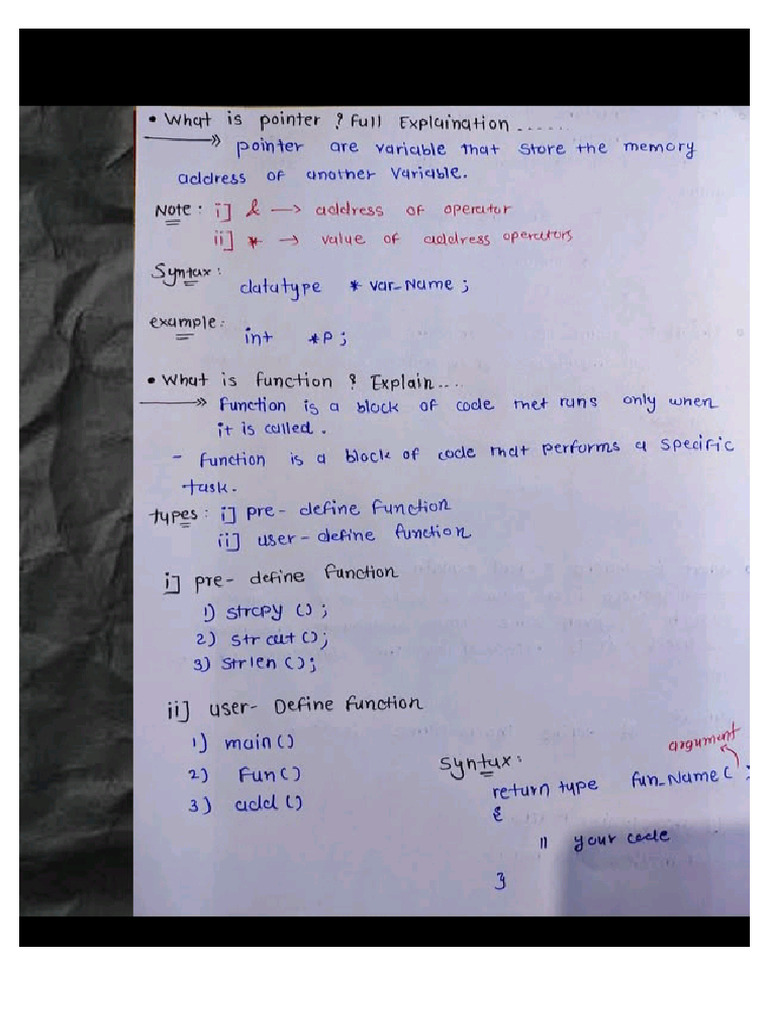 • What is pointer ? Full Explaination ......
pointer are variable that store the memory
address of another variable.
Note : i] & → address of operator
ii] * → value of address operators
Syntax :
datatype * var_Name ;
example :
int *P ;
• What is function ? Explain....
Function is a block of code thet runs only when
it is called .
- Function is a block of code that performs a specific
task .
types : i] pre - define function
ii] user - define function
i] pre - define function
1) strcpy () ;
2) str cat () ;
3) strlen () ;
ii] user - Define function
1) main ()
2) Fun ()
3) add ()
argument
Syntax :
return type fun_Name ( ) ;
{
// your code
}